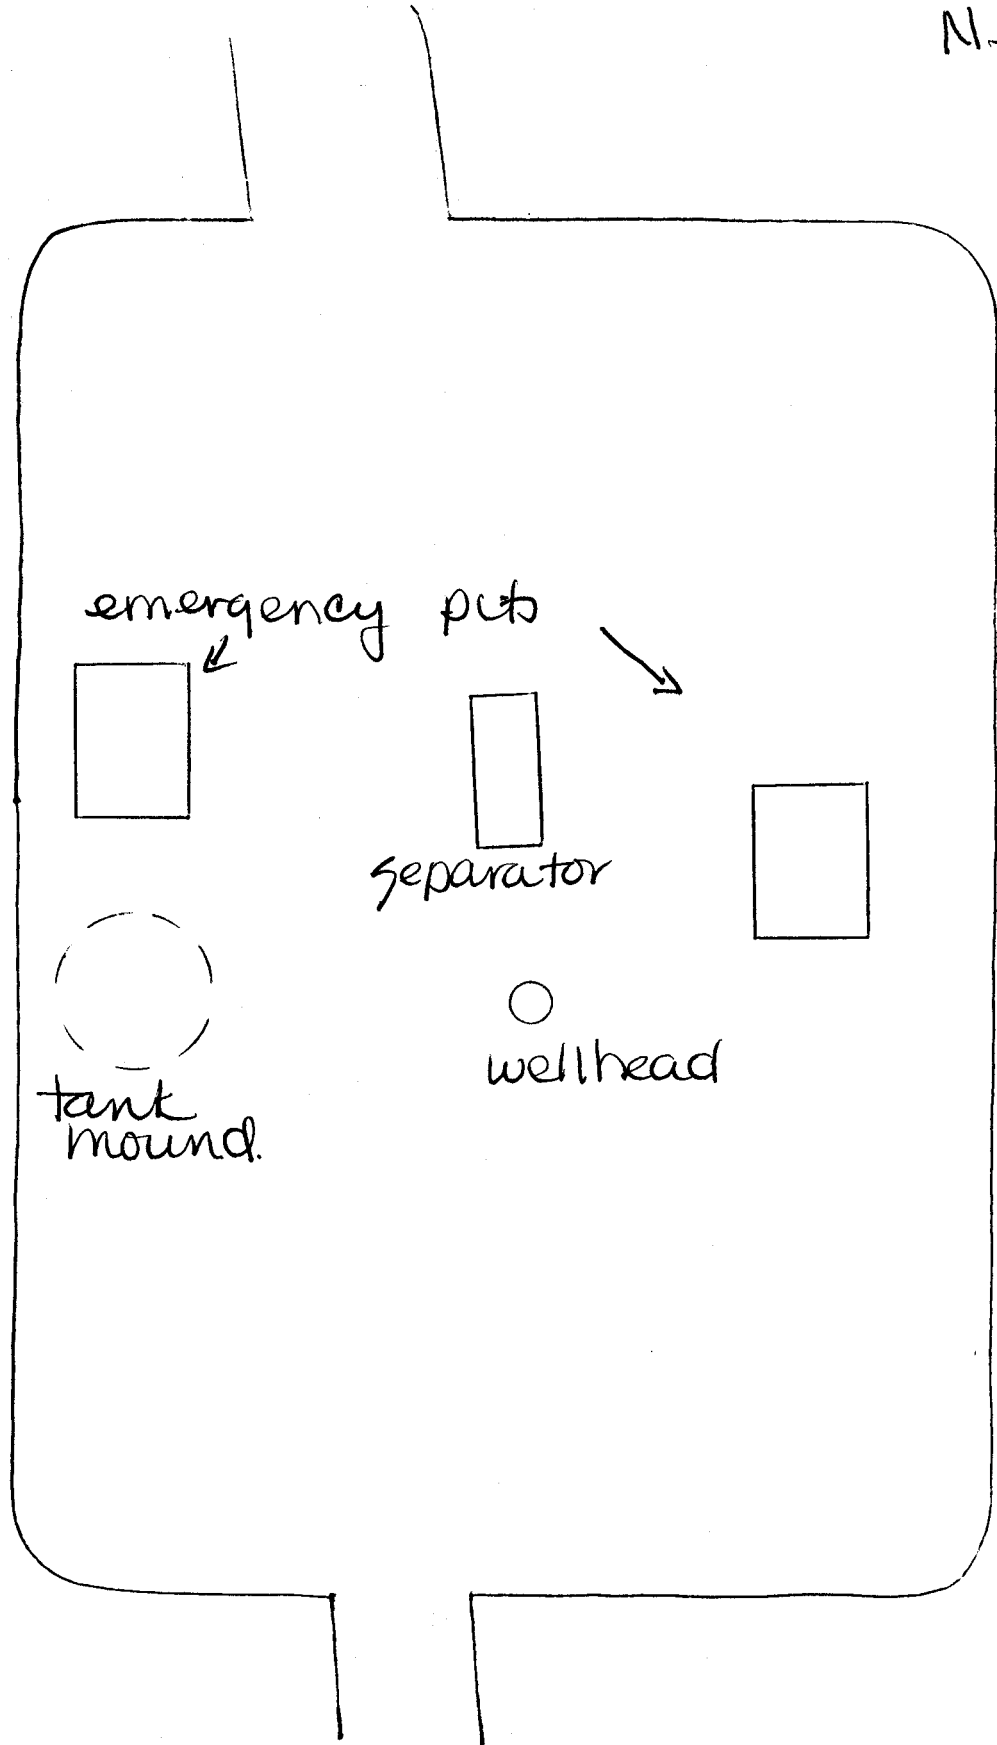 N.
emergency pits
separator
wellhead
tank
mound.